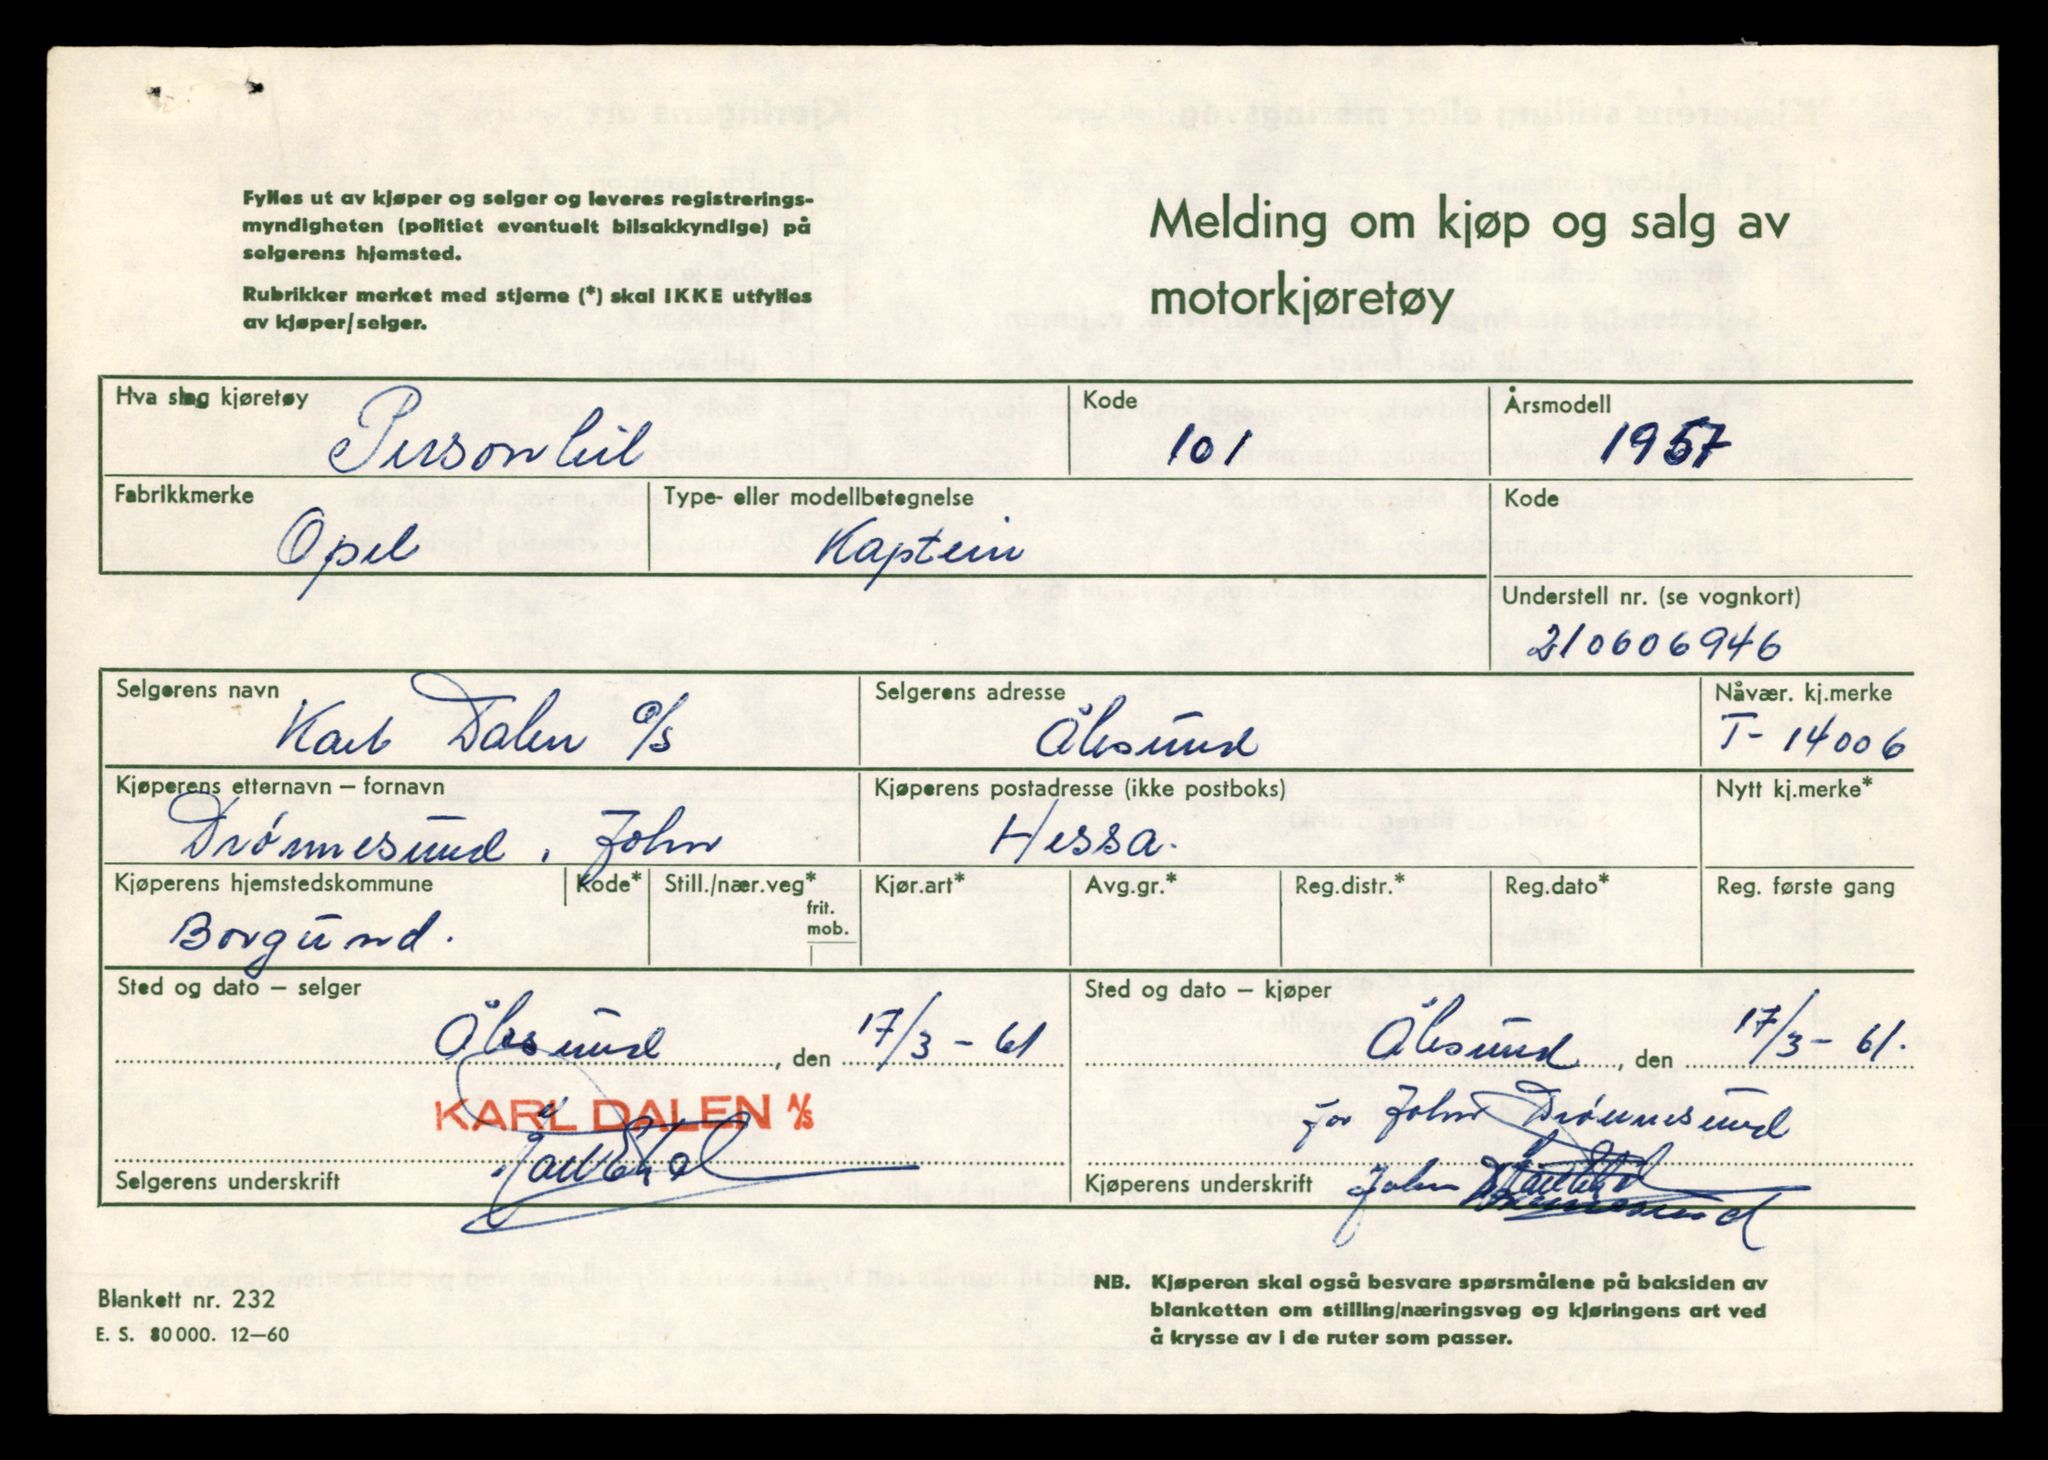 Fylles ut av kjøper og selger og leveres registrerings-
myndigheten (politiet eventuelt bilsakkyndige) på
selgerens hjemsted.
Rubrikker merket med stjerne (*) skal IKKE utfylles
av kjøper/selger.
Melding om kjøp og salg av
motorkjøretøy
Hva slag kjøretøy
Personbil
Kode
101
Årsmodell
1957
Fabrikkmerke
Opel
Type- eller modellbetegnelse
Kaptein
Kode
Understell nr. (se vognkort)
210606946
Selgerens navn
Karl Dalen A/S
Selgerens adresse
Ålesund
Nåvær. kj.merke
T- 14006
Kjøperens etternavn – fornavn
Drønnesund, John
Kjøperens postadresse (ikke postboks)
Hessa.
Nytt kj.merke*
Kjøperens hjemstedskommune
Borgund.
Kode*
Still./nær.veg*
frit.
mob.
Kjør.art*
Avg.gr.*
Reg.distr.*
Reg.dato*
Reg. første gang
Sted og dato – selger
Ålesund, den 17/3 – 61
KARL DALEN A/S
Selgerens underskrift
Sted og dato – kjøper
Ålesund, den 17/3 – 61.
for John Drønnesund
Kjøperens underskrift John Drønnesund
Blankett nr. 232
E. S. 80 000. 12–60
NB. Kjøperen skal også besvare spørsmålene på baksiden av
blanketten om stilling/næringsveg og kjøringens art ved
å krysse av i de ruter som passer.